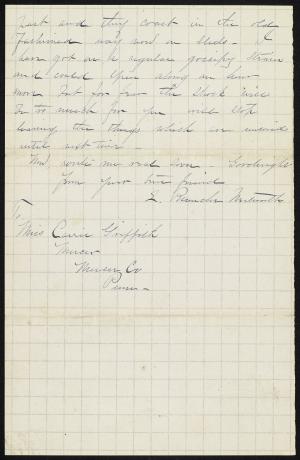 past and they coast in the old
fashioned way and on sleds. I
have got on a regular gossipy strain
and could give along an hour
more but for fear the shock will
be too much for you will stop
leaving the things which are
until next time.
And write me real soon. Goodnight
from your true friend
Blanche
To
Miss Carrie Griffith
Mercer
Mercer Co
Penna